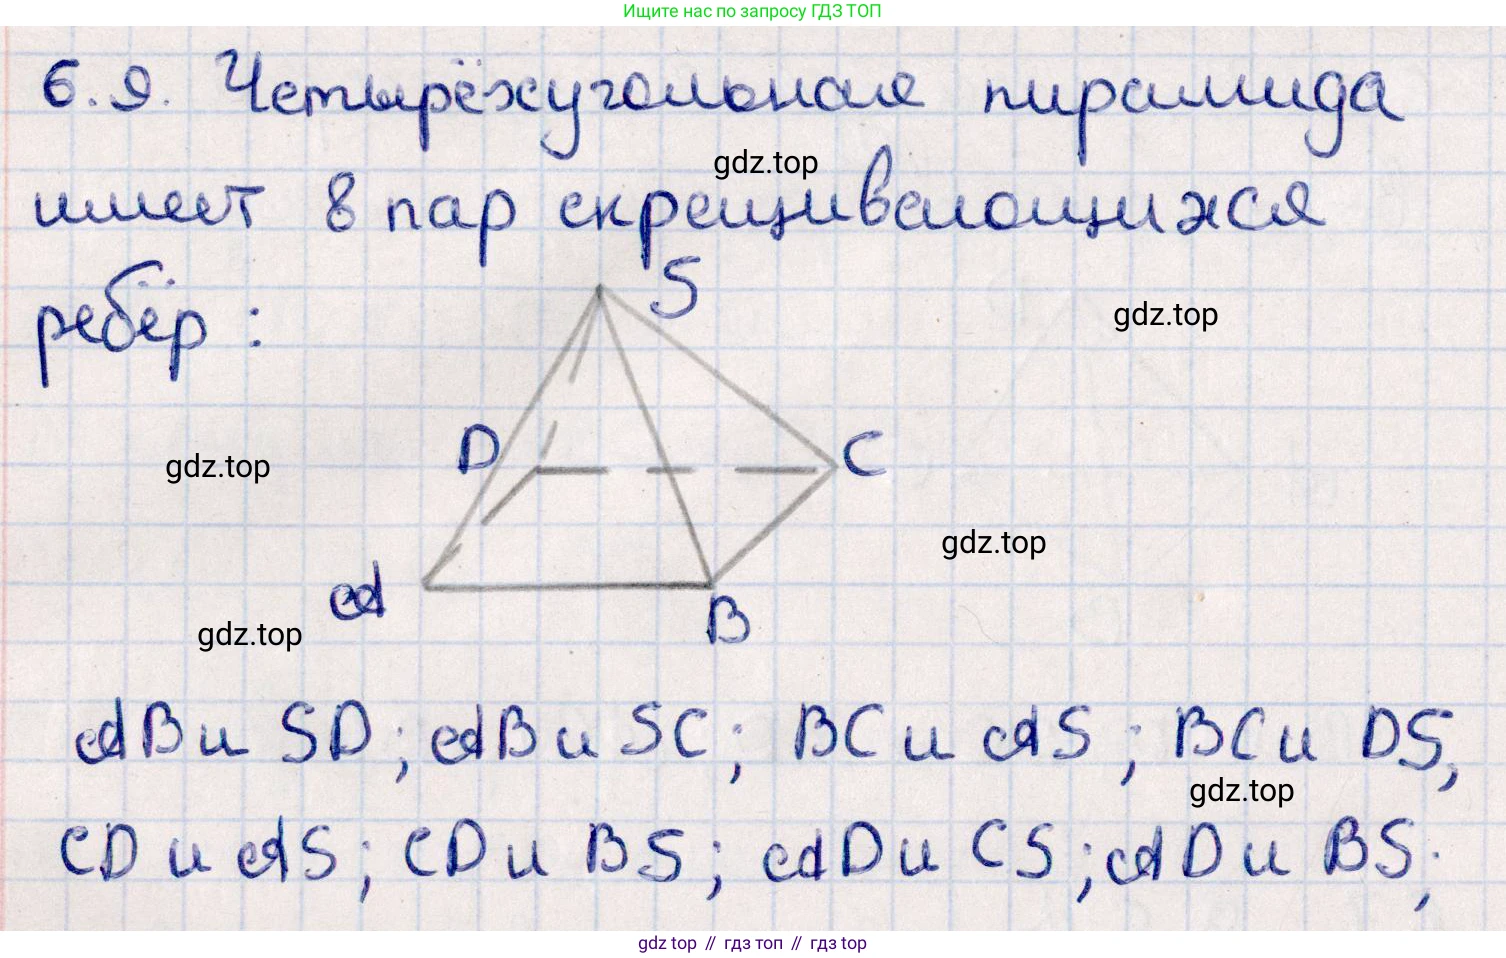 Ищите нас по запросу ГДЗ ТОП
6.9. Четырёхугольная пирамида
gdz.top
имеет 8 пар скрещивающихся
S
ребёр :
gdz.top
D
C
gdz.top
gdz.top
A
B
gdz.top
AB и SD; AB и SC; BC и AS; BC и DS,
gdz.top
CD и AS; CD и BS; AD и CS; AD и BS;
gdz top // гдз топ // гдз top